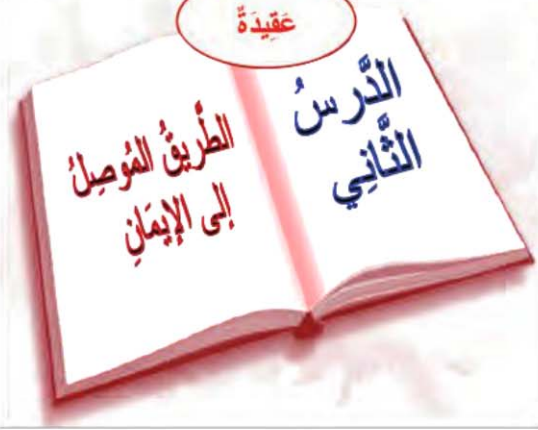 عَقِيدَةٌ
الدَّرسُ
الثَّانِي
الطَّريقُ المُوصِلُ
إلى الإيمَانِ